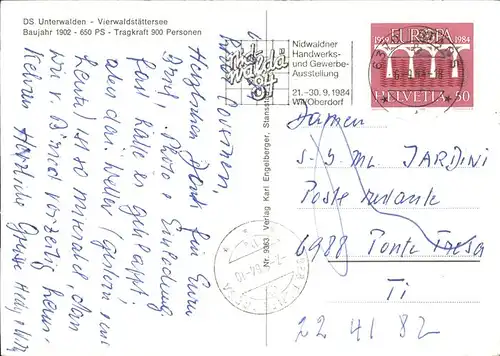 DS Unterwalden - Vierwaldstättersee
Baujahr 1902 - 650 PS - Tragkraft 900 Personen
Herzlichen Dank für Eure
Brief, Photo + Einladung.
Fast hätte es geklappt!
aber das Wetter (gestern, und
heute) ist so miserabel, dass
wir v. Bünd vorzeitig heim-
kehren. Herzliche Grüsse Hedy + Willy
Nid-
walda
84
Nidwaldner
Handwerks-
und Gewerbe-
Ausstellung
21.-30.9.1984
Wil/Oberdorf
1959 EUROPA 1984
HELVETIA 50
Nr. 9363 Verlag Karl Engelberger, Stansstad
Damen
S. + ML. JARDINI
Poste restante
6988 Ponte Tresa
Ti
22 41 82